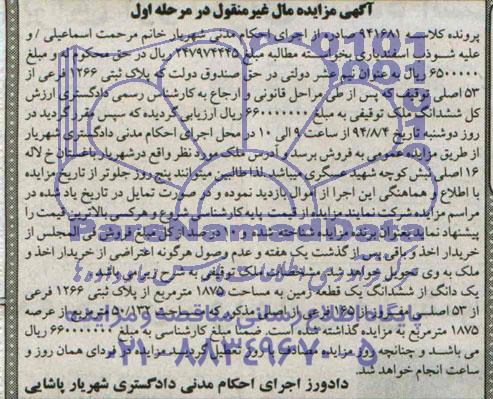 آگهی مزایده مال غیرمنقول در مرحله اول
پرونده کلاسه ۹۴۱۶۸۱ صادره از اجرای احکام مدنی شهریار خانم مرحمت اسماعیلی / و
علیه بخواسته مطالبه مبلغ ۲۴۷۹۷۴۴۲۵ ریال در حق محکوم له و مبلغ
۶۵۰۰۰۰۰ ریال به عنوان نیم عشر دولتی در حق صندوق دولت که پلاک ثبتی ۱۲۶۶ فرعی از
۵۳ اصلی توقیف که پس از طی مراحل قانونی و ارجاع به کارشناس رسمی دادگستری ارزش
کل ششدانگ ملک توقیفی به مبلغ ریال ارزیابی گردیده که سپس مقرر گردید در
روز دوشنبه تاریخ ۹۴/۸/۴ از ساعت ۹ الی ۱۰ در محل اجرای احکام مدنی دادگستری شهریار
از طریق مزایده عمومی به فروش برسد و آدرس ملک مورد نظر واقع در شهریار باغستان خ لاله
۱۶ اصلی نبش کوچه شهید عسگری میباشد. لذا طالبین میتوانند پنج روز جلوتر از تاریخ مزایده
با اطلاع و هماهنگی این اجرا از اموال بازدید نموده و در صورت تمایل در تاریخ یاد شده در
مراسم مزایده شرکت نمایند. مزایده از قیمت پایه کارشناسی شروع و هر کسی بالاترین قیمت را
پیشنهاد نماید بعنوان برنده مزایده شناخته شده و ۱۰ درصد از کل مبلغ فروش فی المجلس از
خریدار اخذ و باقی پس از گذشت یک هفته و عدم وصول هرگونه اعتراضی از خریدار اخذ و
ملک به وی تحویل خواهد شد. مشخصات ملک توقیفی به شرح زیر می باشد
یک دانگ از ششدانگ یک قطعه زمین به مساحت ۱۸۷۵ مترمربع از پلاک ثبتی ۱۲۶۶ فرعی
از ۵۳ اصلی مفروز از ۱۶۵ فرعی از اصلی مذکور که مساحت مترمربع از عرصه
۱۸۷۵ مترمربع به مزایده گذاشته شده است. ضمنا مبلغ کارشناسی به مبلغ ریال
می باشد و چنانچه روز مزایده مصادف با روز تعطیل گردید مزایده در فردای همان روز و
ساعت انجام خواهد شد.
دادورز اجرای احکام مدنی دادگستری شهریار پاشایی
ParsNamadData
پایگاه اطلاع رسانی مناقصات و مزایده
۰۲۱-۸۸۳۴۹۶۷۰-۵